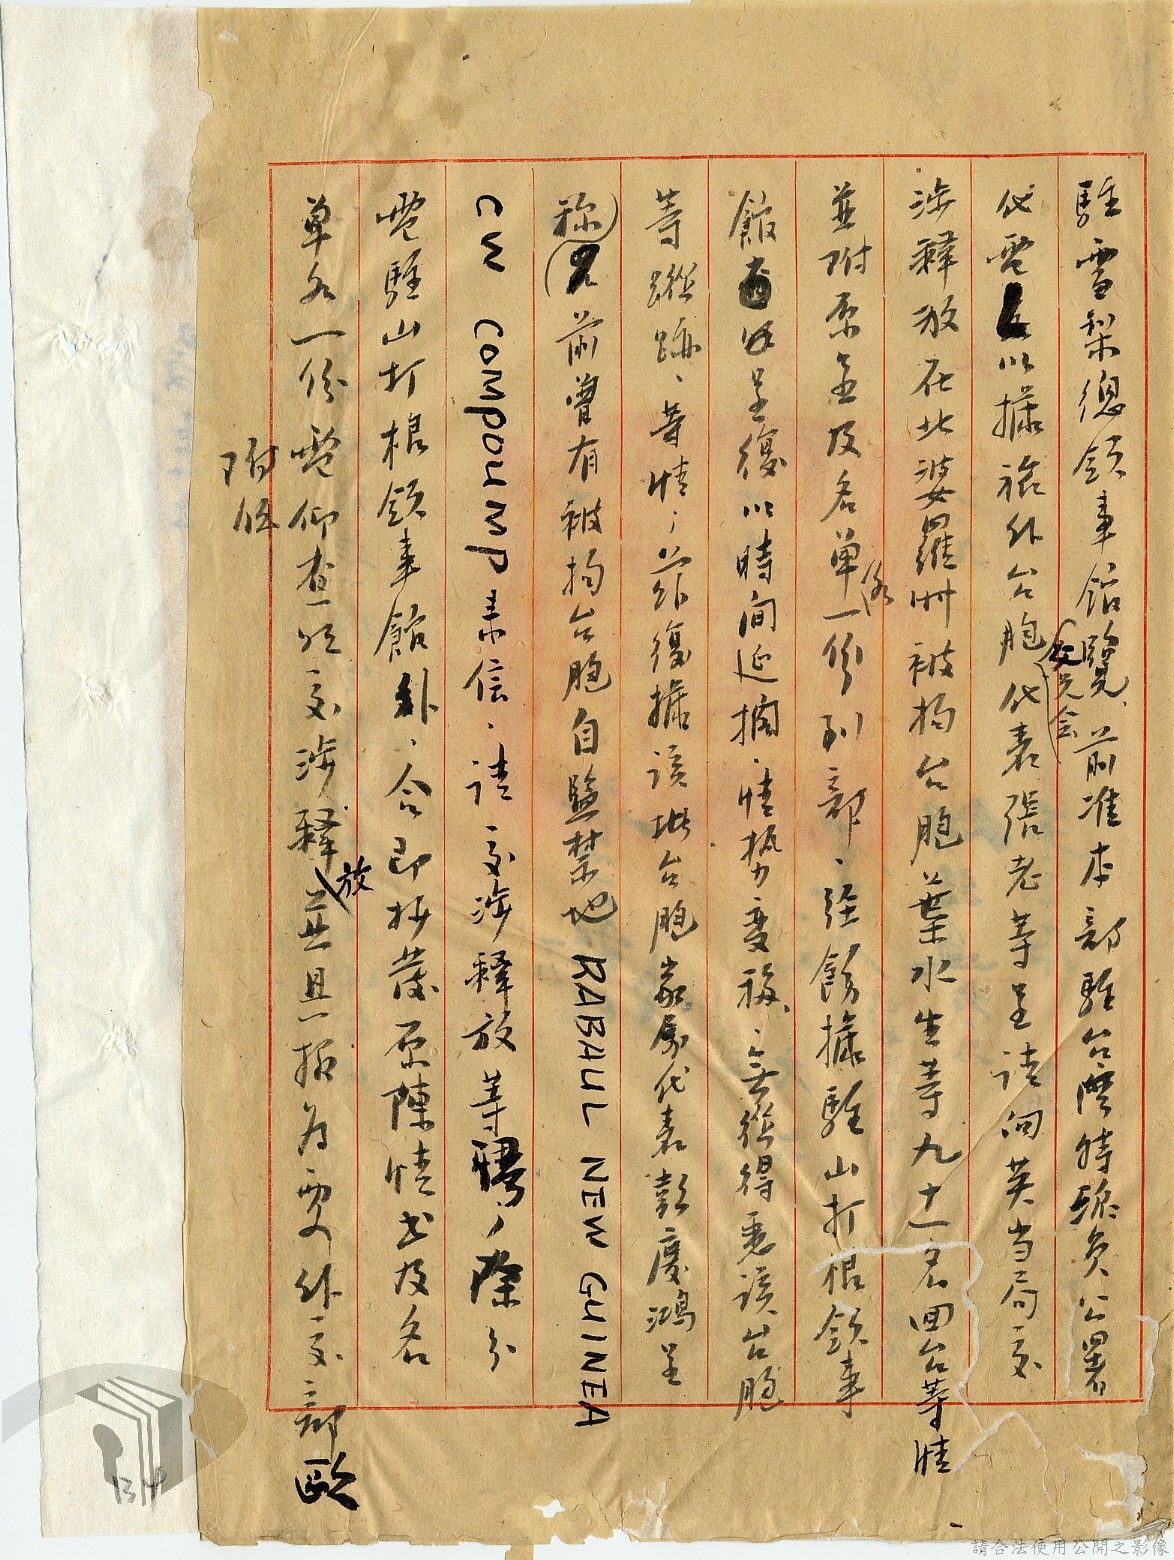 駐雪梨總領事館覽前准本部駐台灣特派員公署
代電以據旅外台胞代表張老等呈請向英当局交
役先会
涉釋放在北婆羅州被拘台胞葉水生等九十一名回台等情
並附原呈及名單一份到部、經飭據駐山打根領事
各
館呈復以時间延擱、情势变移、無從得悉該台胞
等蹤跡、等情、茲復據該批台胞家屬代表彭慶鴻呈
称前曾有被拘台胞自監禁地 RABAUL NEW GUINEA
CW COMPOUMP 来信、請交涉釋放等、除分
電駐山打根領事館外、合即抄發原陳情书及名
單各一份電仰查照交涉釋並且报为要外交部歐
放
附伍
134
請合法使用公開之影像